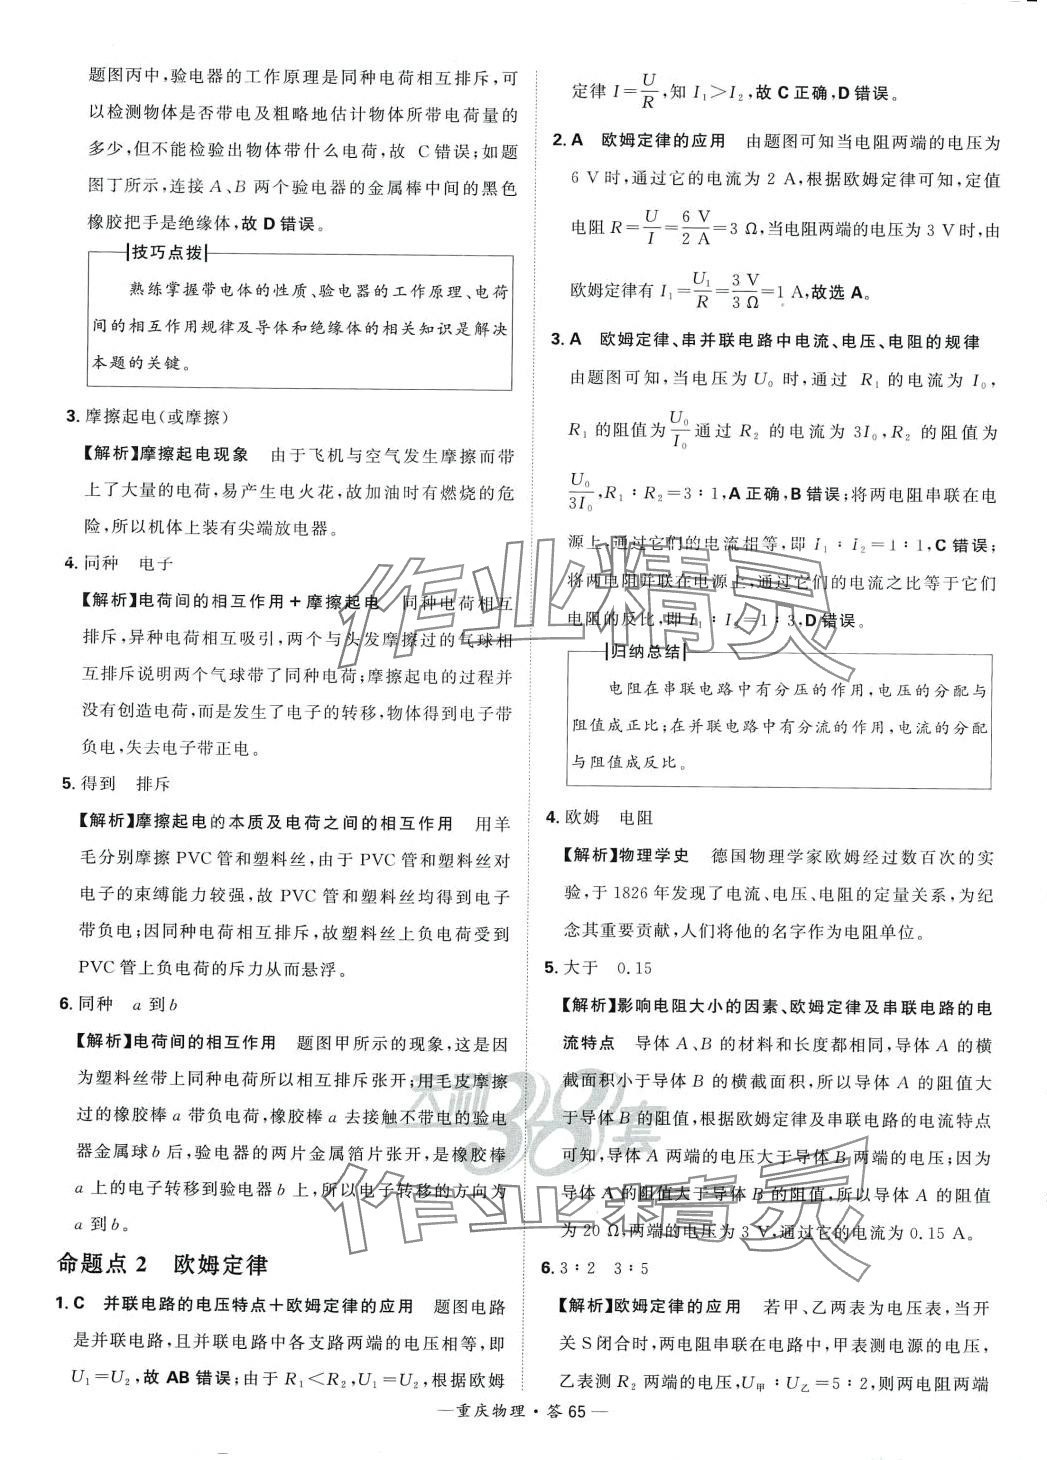 题图丙中,验电器的工作原理是同种电荷相互排斥,可
以检测物体是否带电及粗略地估计物体所带电荷量的
多少,但不能检验出物体带什么电荷,故 C错误;如题
图丁所示,连接A、B两个验电器的金属棒中间的黑色
橡胶把手是绝缘体,故D错误。
技巧点拨
熟练掌握带电体的性质、验电器的工作原理、电荷
间的相互作用规律及导体和绝缘体的相关知识是解决
本题的关键。
3.摩擦起电(或摩擦)
【解析】摩擦起电现象 由于飞机与空气发生摩擦而带
上了大量的电荷,易产生电火花,故加油时有燃烧的危
险,所以机体上装有尖端放电器。
4.同种 电子
【解析】电荷间的相互作用+摩擦起电 同种电荷相互
排斥,异种电荷相互吸引,两个与头发摩擦过的气球相
互排斥说明两个气球带了同种电荷;摩擦起电的过程并
没有创造电荷,而是发生了电子的转移,物体得到电子带
负电,失去电子带正电。
5.得到 排斥
【解析】摩擦起电的本质及电荷之间的相互作用 用羊
毛分别摩擦PVC管和塑料丝,由于PVC管和塑料丝对
电子的束缚能力较强,故PVC管和塑料丝均得到电子
带负电;因同种电荷相互排斥,故塑料丝上负电荷受到
PVC管上负电荷的斥力从而悬浮。
6.同种 a到b
【解析】电荷间的相互作用 题图甲所示的现象,这是因
为塑料丝带上同种电荷所以相互排斥张开;用毛皮摩擦
过的橡胶棒a带负电荷,橡胶棒a去接触不带电的验电
器金属球b后,验电器的两片金属箔片张开,是橡胶棒
a上的电子转移到验电器b上,所以电子转移的方向为
a到b。
命题点2 欧姆定律
1.C 并联电路的电压特点+欧姆定律的应用 题图电路
是并联电路,且并联电路中各支路两端的电压相等,即
U₁=U₂,故AB错误;由于R₁<R₂,U₁=U₂,根据欧姆
定律I=U/R,知I₁>I₂,故C正确,D错误。
2.A 欧姆定律的应用 由题图可知当电阻两端的电压为
6 V时,通过它的电流为2 A,根据欧姆定律可知,定值
电阻R=U/I=6 V/2 A=3 Ω,当电阻两端的电压为3 V时,由
欧姆定律有I₁=U₁/R=3 V/3 Ω=1 A,故选A。
3.A 欧姆定律、串并联电路中电流、电压、电阻的规律
由题图可知,当电压为U₀时,通过 R₁的电流为I₀,
R₁的阻值为U₀/I₀通过R₂的电流为3I₀,R₂的阻值为
U₀/3I₀,R₁∶R₂=3∶1,A正确,B错误;将两电阻串联在电
源上,通过它们的电流相等,即I₁∶I₂=1∶1,C错误;
将两电阻并联在电源上,通过它们的电流之比等于它们
电阻的反比,即I₁∶I₂=1∶3,D错误。
归纳总结
电阻在串联电路中有分压的作用,电压的分配与
阻值成正比;在并联电路中有分流的作用,电流的分配
与阻值成反比。
4.欧姆 电阻
【解析】物理学史 德国物理学家欧姆经过数百次的实
验,于1826年发现了电流、电压、电阻的定量关系,为纪
念其重要贡献,人们将他的名字作为电阻单位。
5.大于 0.15
【解析】影响电阻大小的因素、欧姆定律及串联电路的电
流特点 导体A、B的材料和长度都相同,导体A的横
截面积小于导体B的横截面积,所以导体A的阻值大
于导体B的阻值,根据欧姆定律及串联电路的电流特点
可知,导体A两端的电压大于导体B两端的电压;因为
导体A的阻值大于导体B的阻值,所以导体A的阻值
为20 Ω,两端的电压为3 V,通过它的电流为0.15 A。
6.3∶2 3∶5
【解析】欧姆定律的应用 若甲、乙两表为电压表,当开
关S闭合时,两电阻串联在电路中,甲表测电源的电压,
乙表测R₂两端的电压,U甲∶U乙=5∶2,则两电阻两端
—重庆物理·答65—
作业精灵
天利38套
作业精灵